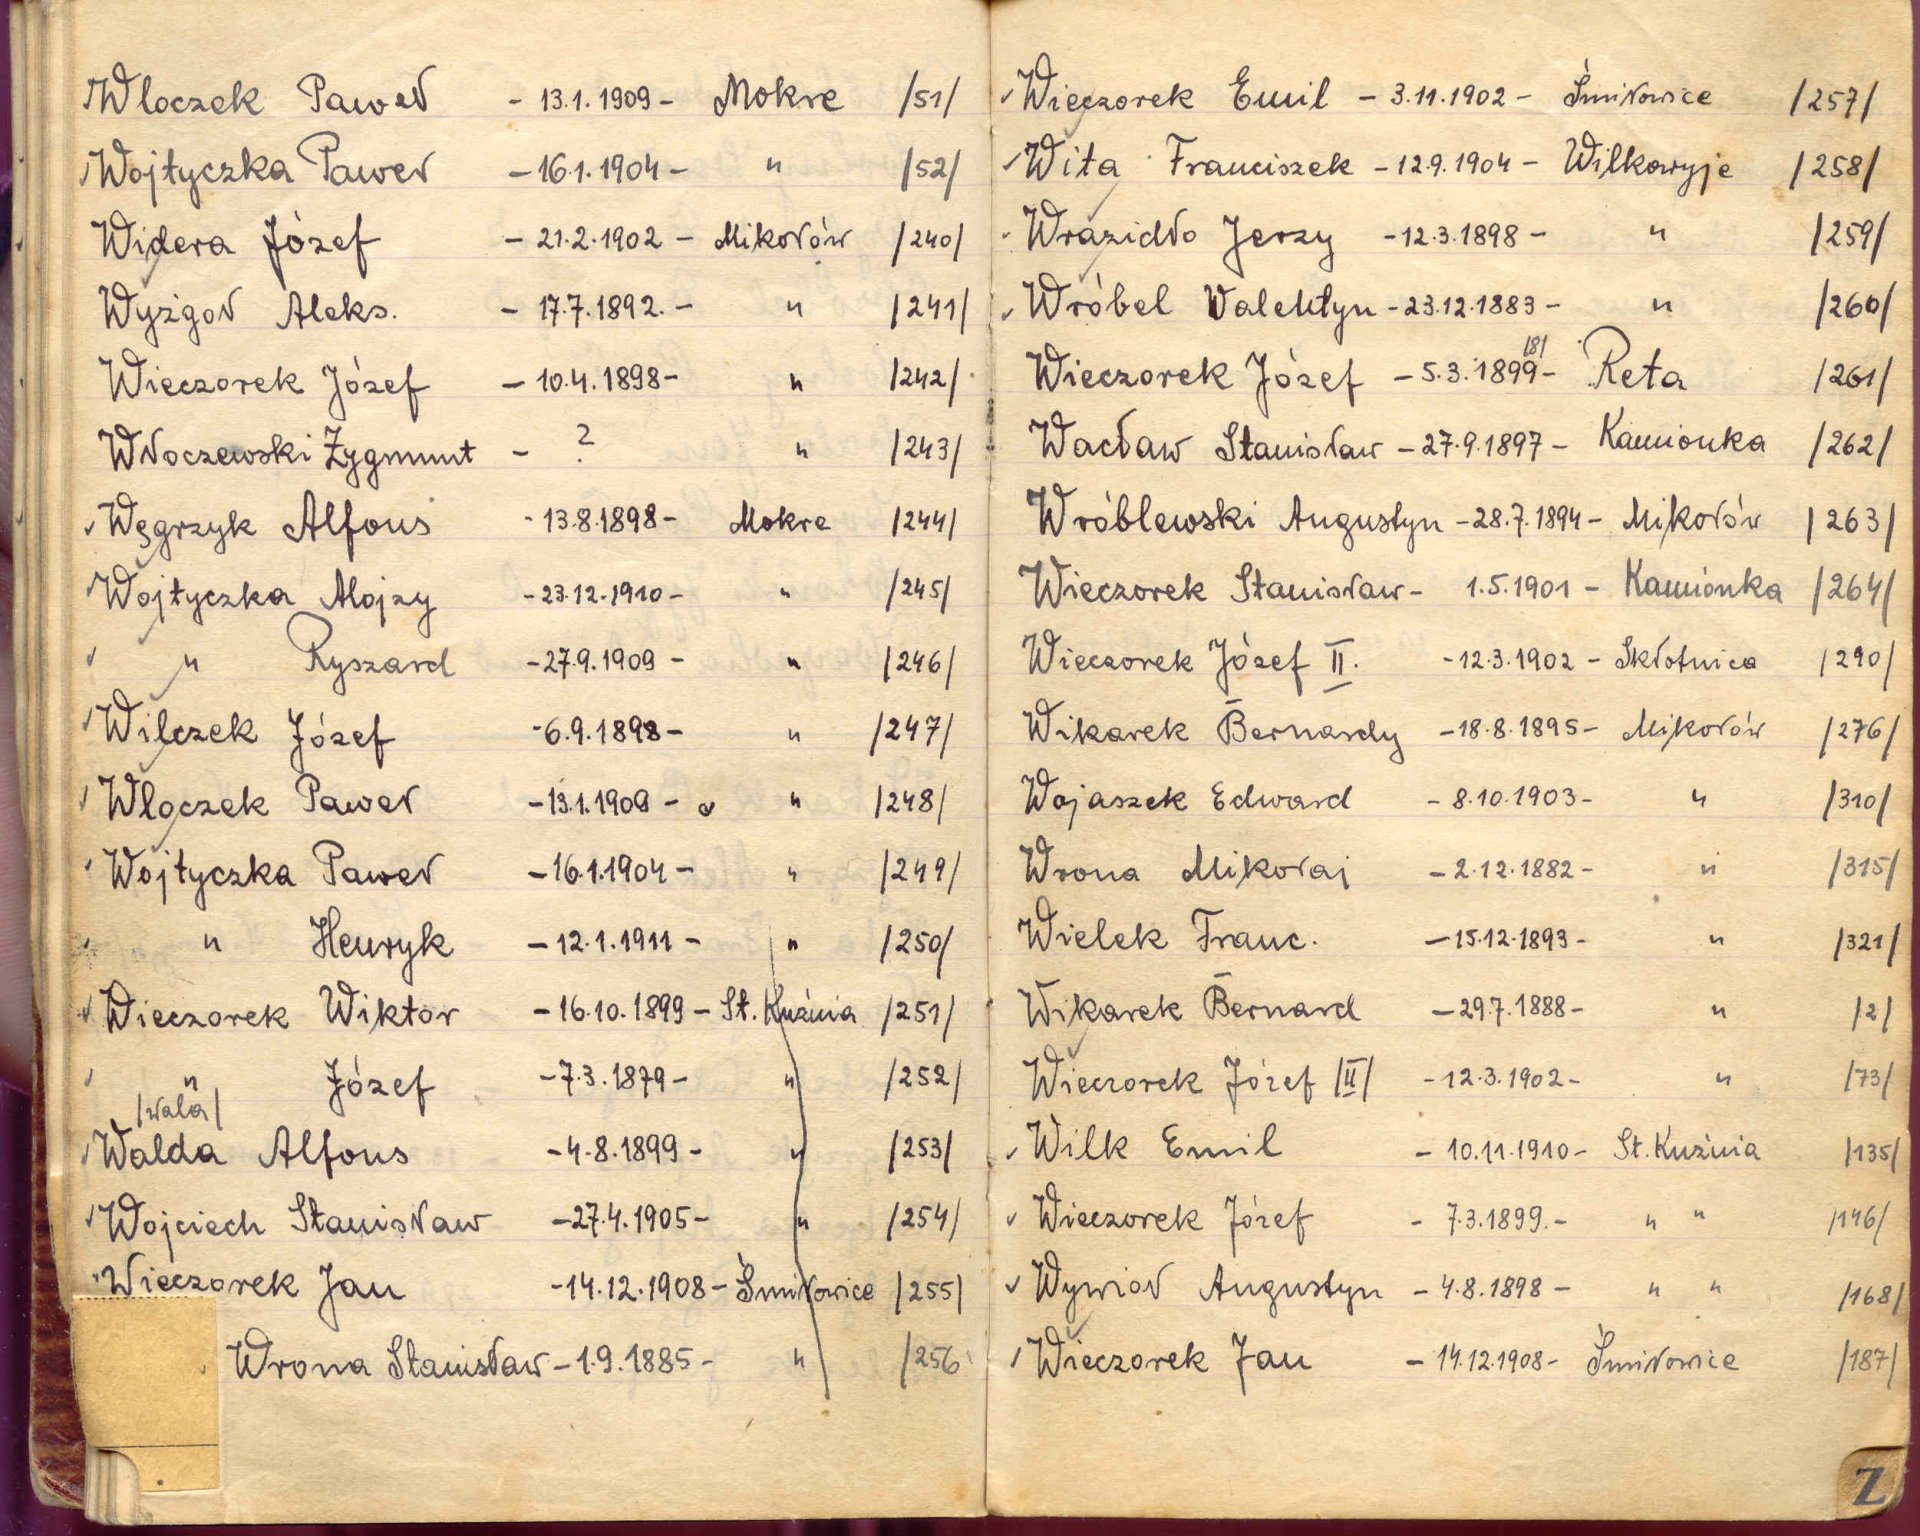 Wloczek Paweł - 13.1.1909 - Mokre /51/
Wojtyczka Paweł - 16.1.1904 - " /52/
Widera Józef - 21.2.1902 - Mikołów /240/
Wyżgoł Aleks. - 17.7.1892. - " /241/
Wieczorek Józef - 10.4.1898 - " /242/
Włoczewski Zygmunt - ? " /243/
Węgrzyk Alfons - 13.8.1898 - Mokre /244/
Wojtyczka Alojzy - 23.12.1910 - " /245/
" Ryszard - 27.9.1909 - " /246/
Wilczek Józef - 6.9.1898 - " /247/
Wloczek Paweł - 13.1.1909 - " /248/
Wojtyczka Paweł - 16.1.1904 - " /249/
" Henryk - 12.1.1911 - " /250/
Wieczorek Wiktor - 16.10.1899 - St. Kuźnia /251/
" Józef - 7.3.1879 - " /252/
/wala/
Walda Alfons - 4.8.1899 - " /253/
Wojciech Stanisław - 27.4.1905 - " /254/
Wieczorek Jan - 14.12.1908 - Śmiłowice /255/
Wrona Stanisław - 1.9.1885 - " /256
Wieczorek Emil - 3.11.1902 - Śmiłowice /257/
Wita Franciszek - 12.9.1904 - Wilkowyje /258/
Wrazidło Jerzy - 12.3.1898 - " /259/
Wróbel Walentyn - 23.12.1883 - " /260/
/8/
Wieczorek Józef - 5.3.1899 - Reta /261/
Wacław Stanisław - 27.9.1897 - Kamionka /262/
Wróblewski Augustyn - 28.7.1894 - Mikołów /263/
Wieczorek Stanisław - 1.5.1901 - Kamionka /264/
Wieczorek Józef II. - 12.3.1902 - Skłotnica /290/
Wikarek Bernardy - 18.8.1895 - Mikołów /276/
Wojaszek Edward - 8.10.1903 - " /310/
Wrona Mikołaj - 2.12.1882 - " /315/
Wielek Franc. - 15.12.1893 - " /321/
Wikarek Bernard - 29.7.1888 - " /2/
Wieczorek Józef /II/ - 12.3.1902 - " /73/
Wilk Emil - 10.11.1910 - St. Kuźnia /135/
Wieczorek Józef - 7.3.1899. - " " /146/
Wywioł Augustyn - 4.8.1898 - " " /168/
Wieczorek Jan - 14.12.1908 - Śmiłowice /187/
Z